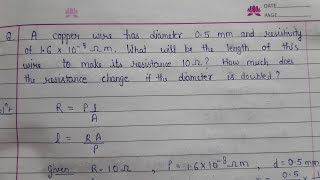 DATE
PAGE
Q. A copper wire has diameter 0.5 mm and resistivity
of 1.6 x 10⁻⁸ Ω m. What will be the length of this
wire to make its resistance 10 Ω? How much does
the resistance change if the diameter is doubled?
R = ρ l
A
l = RA
ρ
Given R = 10 Ω, ρ = 1.6 x 10⁻⁸ Ω m, d = 0.5 mm